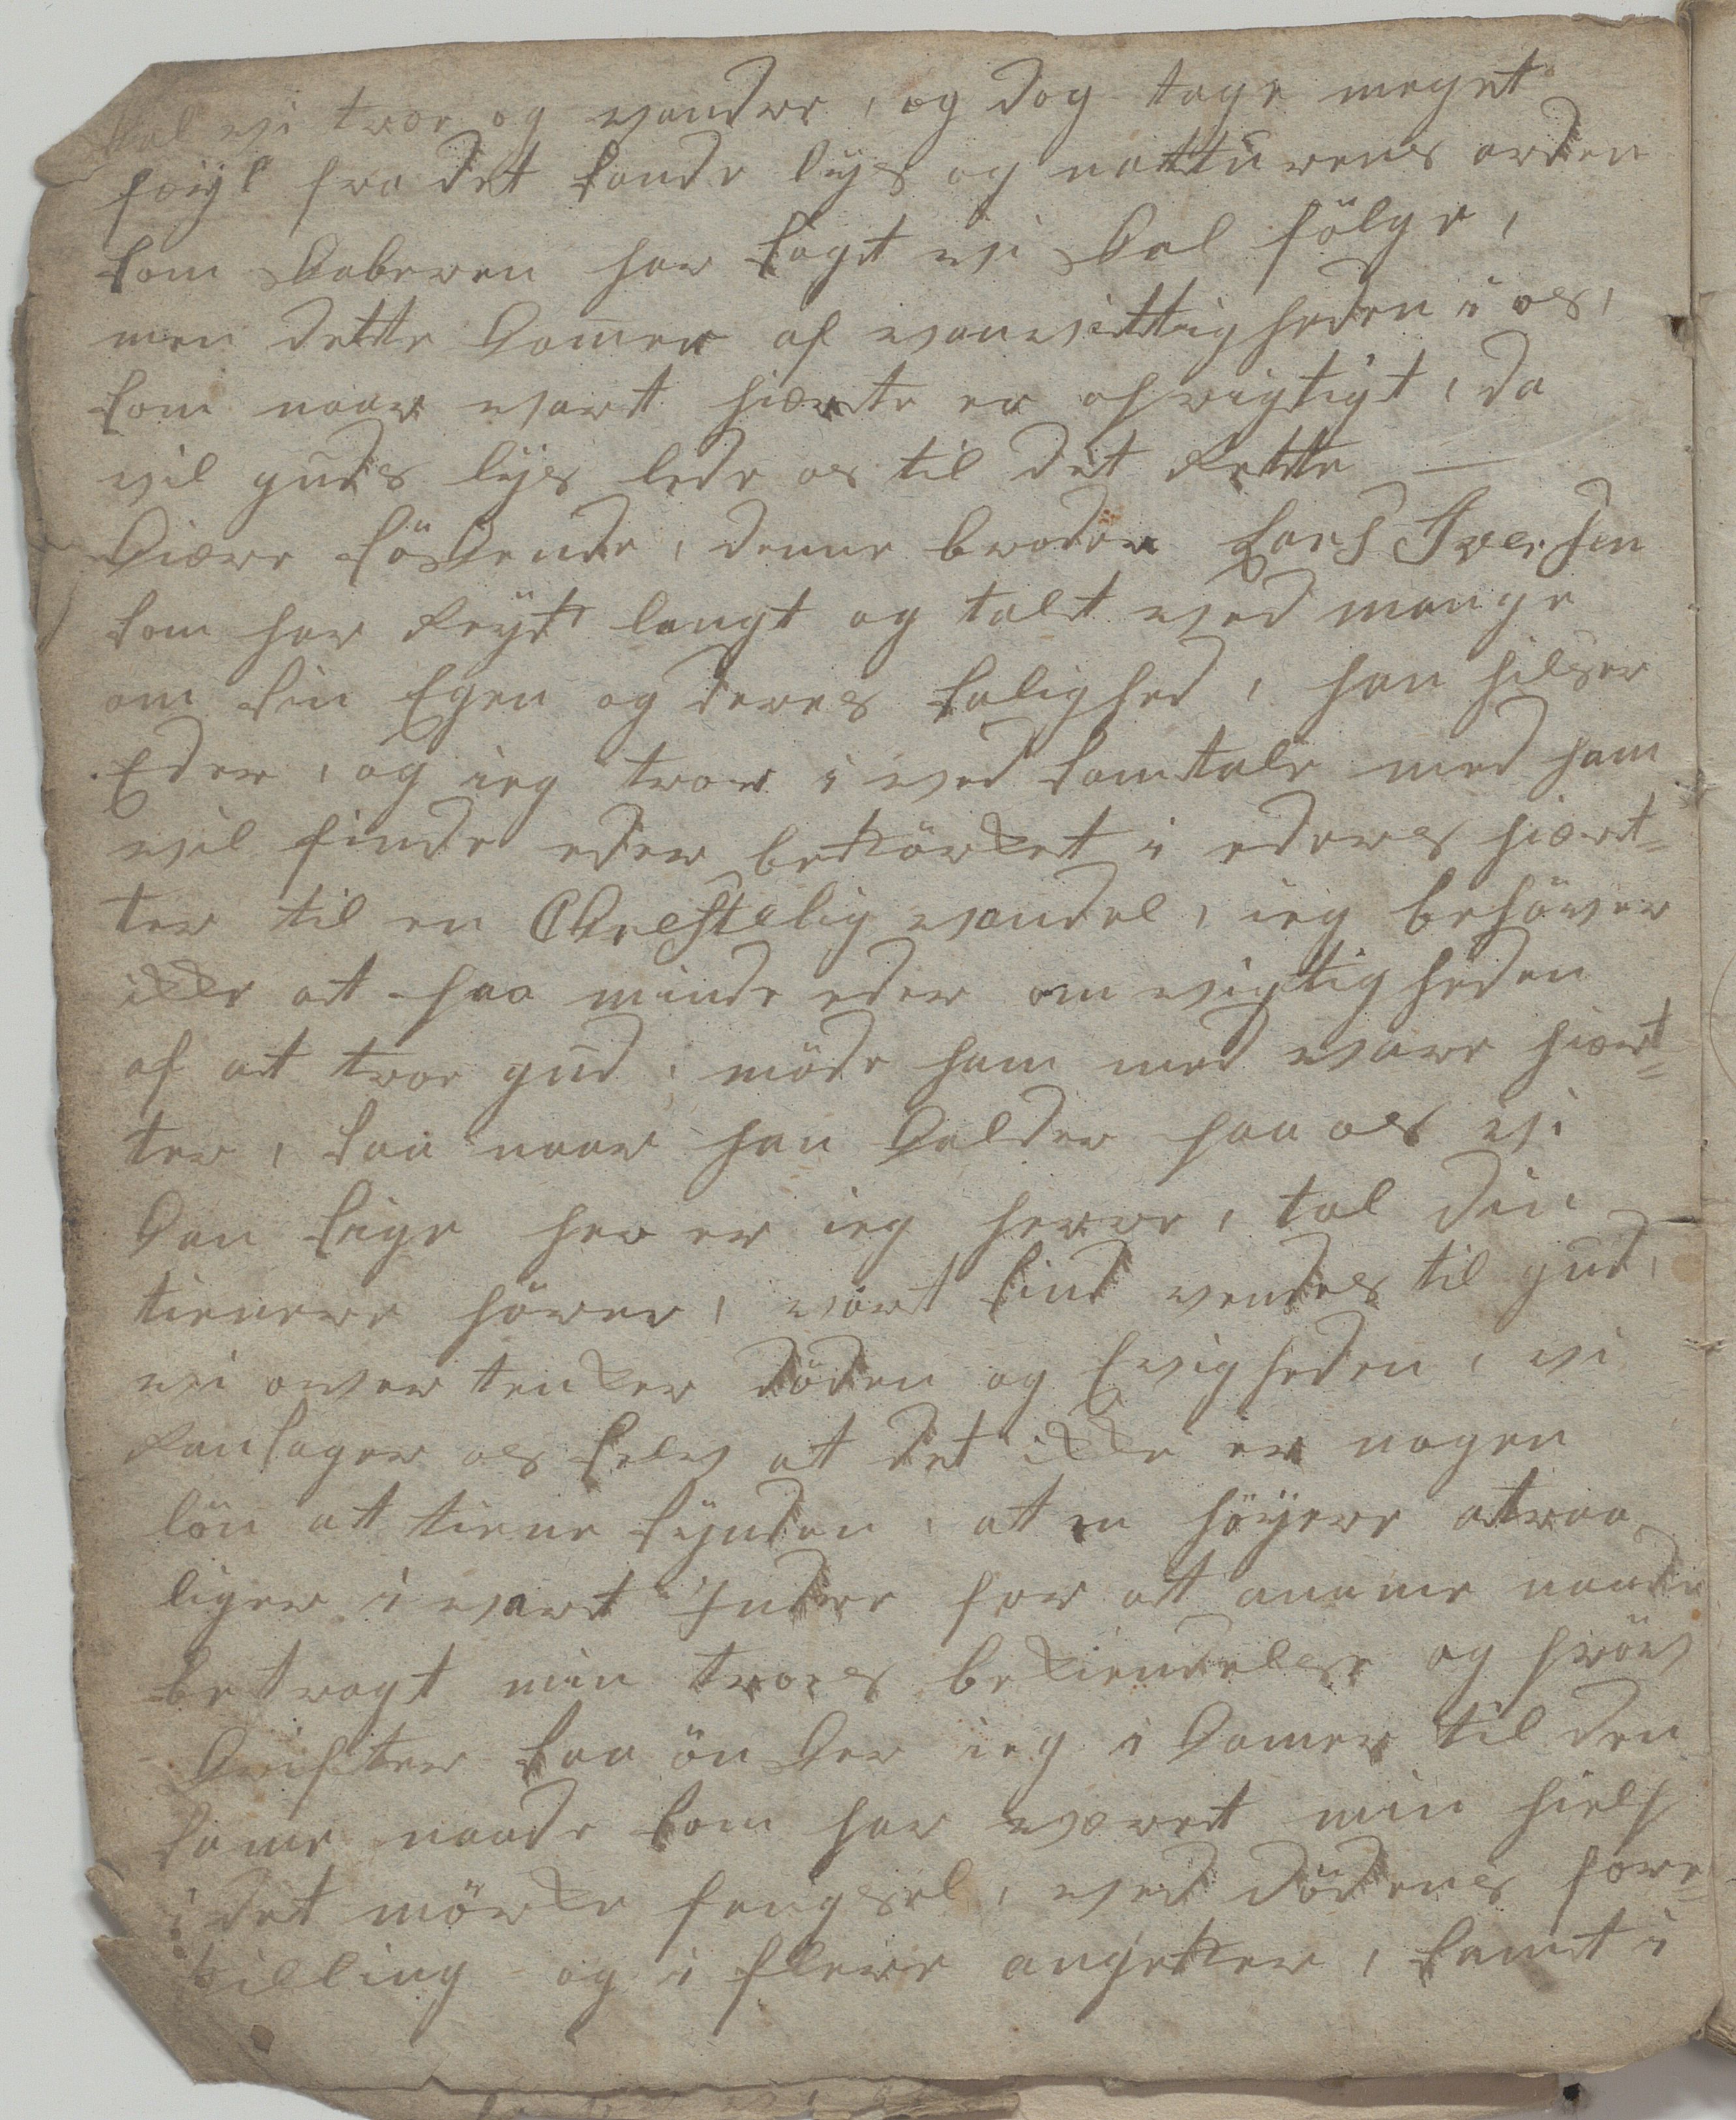 skal vi troe og vandre, og dog tage meget
fæyl fra det sande lys og natturens orden
som skaberen har sagt vi skal fölge,
men dette komer af vanvittigheden i os,
som naar vart hierte er ofrigtigt, da
vil guds lys lede os til det Rette —
kiære söskende, denne broder Lars Iversen
som har Reyst langt og talt ved mange
om sin Egen og deres salighed, han hilser
Eder, og ieg troer i ved samtale med ham
vil finde eder bestörket iederes hiert=
ter til en Chrestelig vandel, ieg behöver
ikke at paa minde eder om vigtigheden
af at troe gud, möde ham med vare hiert=
ter, saa naar han kalder paa os vi
kan sige her er ieg herre, tal din
tienere hörer, vart sind vendes til gud,
vi over tenker döden og Evigheden, vi
Ransager os selv at det ikke er nogen
lön at tiene synden, at en höyere atraa
liger i vart Indre for at aname naade
betragt min troes bekiendelse og fröv
skrifter saa önsker ieg i komer til den
same naade som har været min hielp
i det mörke fengsel, ved dödens fore=
stilling og i flere angster, samt i